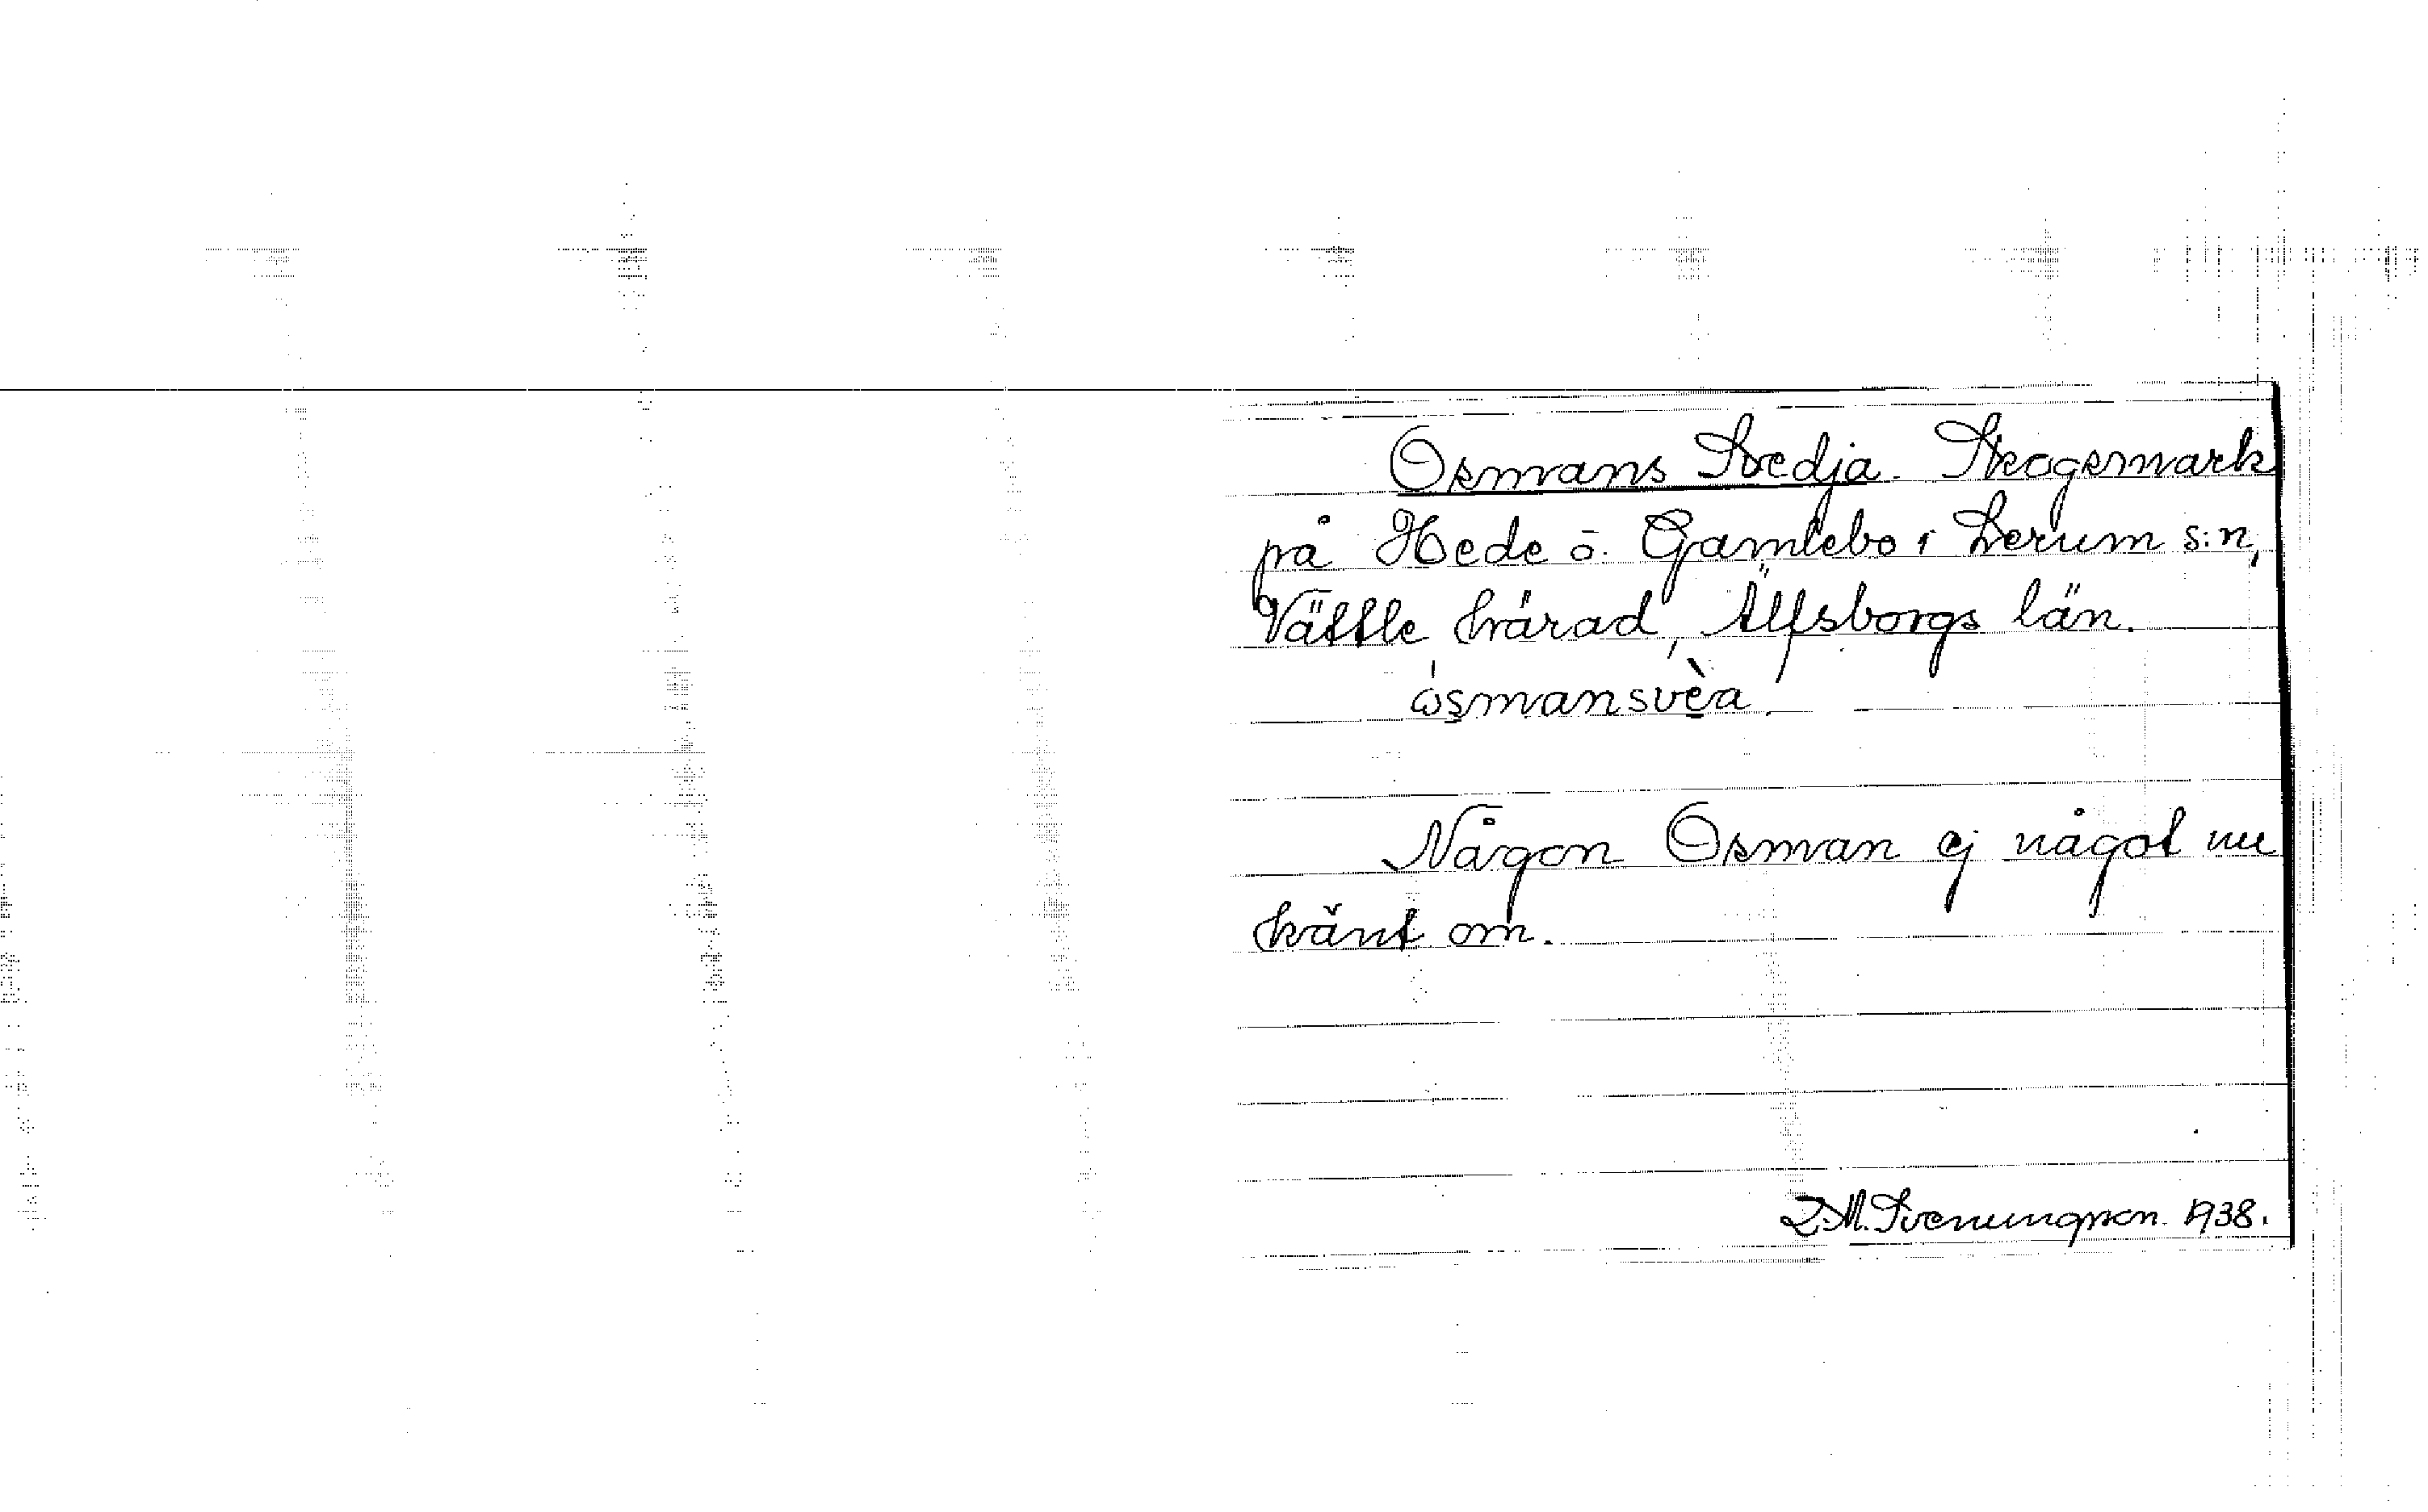 Osmans Svedja. Skogsmark
på Hede ö. Gamlebo i Lerum s:n,
Vättle härad, Älfsborgs län.
ɷ́smansvèa.
Någon Osman ej något nu
känt om.
D.M. Svenungsson. 1938.